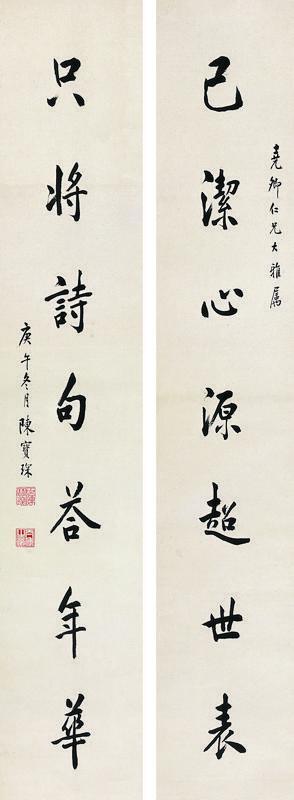 堯卿仁兄大雅属
已潔心源超世表
只將詩句荅年華
庚午冬月陳寶琛